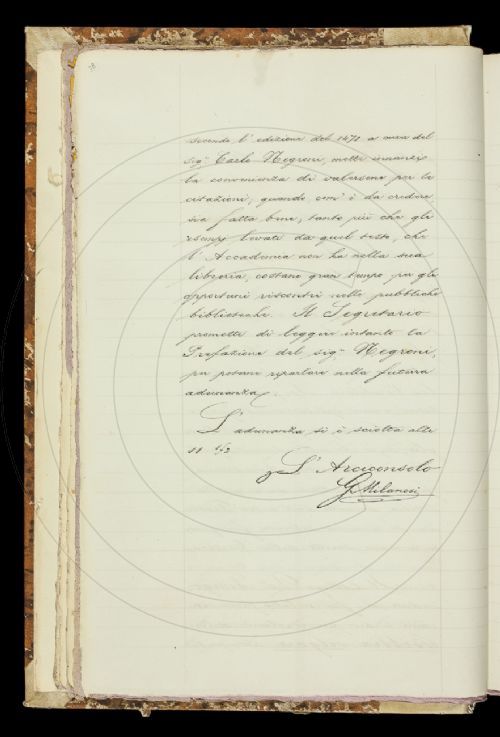 secondo l' edizione del 1471 a cura del
sigr Carlo Negroni, mette innanzi
la convenienza di valersene per le
citazioni, quando, com' è da credere
sia fatta bene, tanto più che gli
esempj levati da quel testo, che
l' Accademia non ha nella sua
libreria, costano gran tempo per gli
opportuni riscontri nelle pubbliche
biblioteche. Il Segretario
promette di leggere intanto la
Prefazione del sigr Negroni,
per poterne riparlare nella futura
adunanza.
L' adunanza si è sciolta alle
11 1/2
L' Arciconsolo
G Milanesi